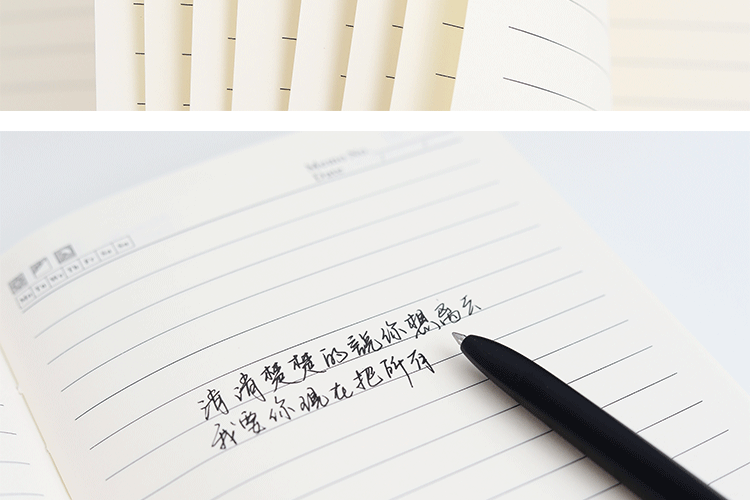 Memo No.
Date
Mo Tu We Th Fr Sa Su
清清楚楚的說你想离去
我要你現在把所有